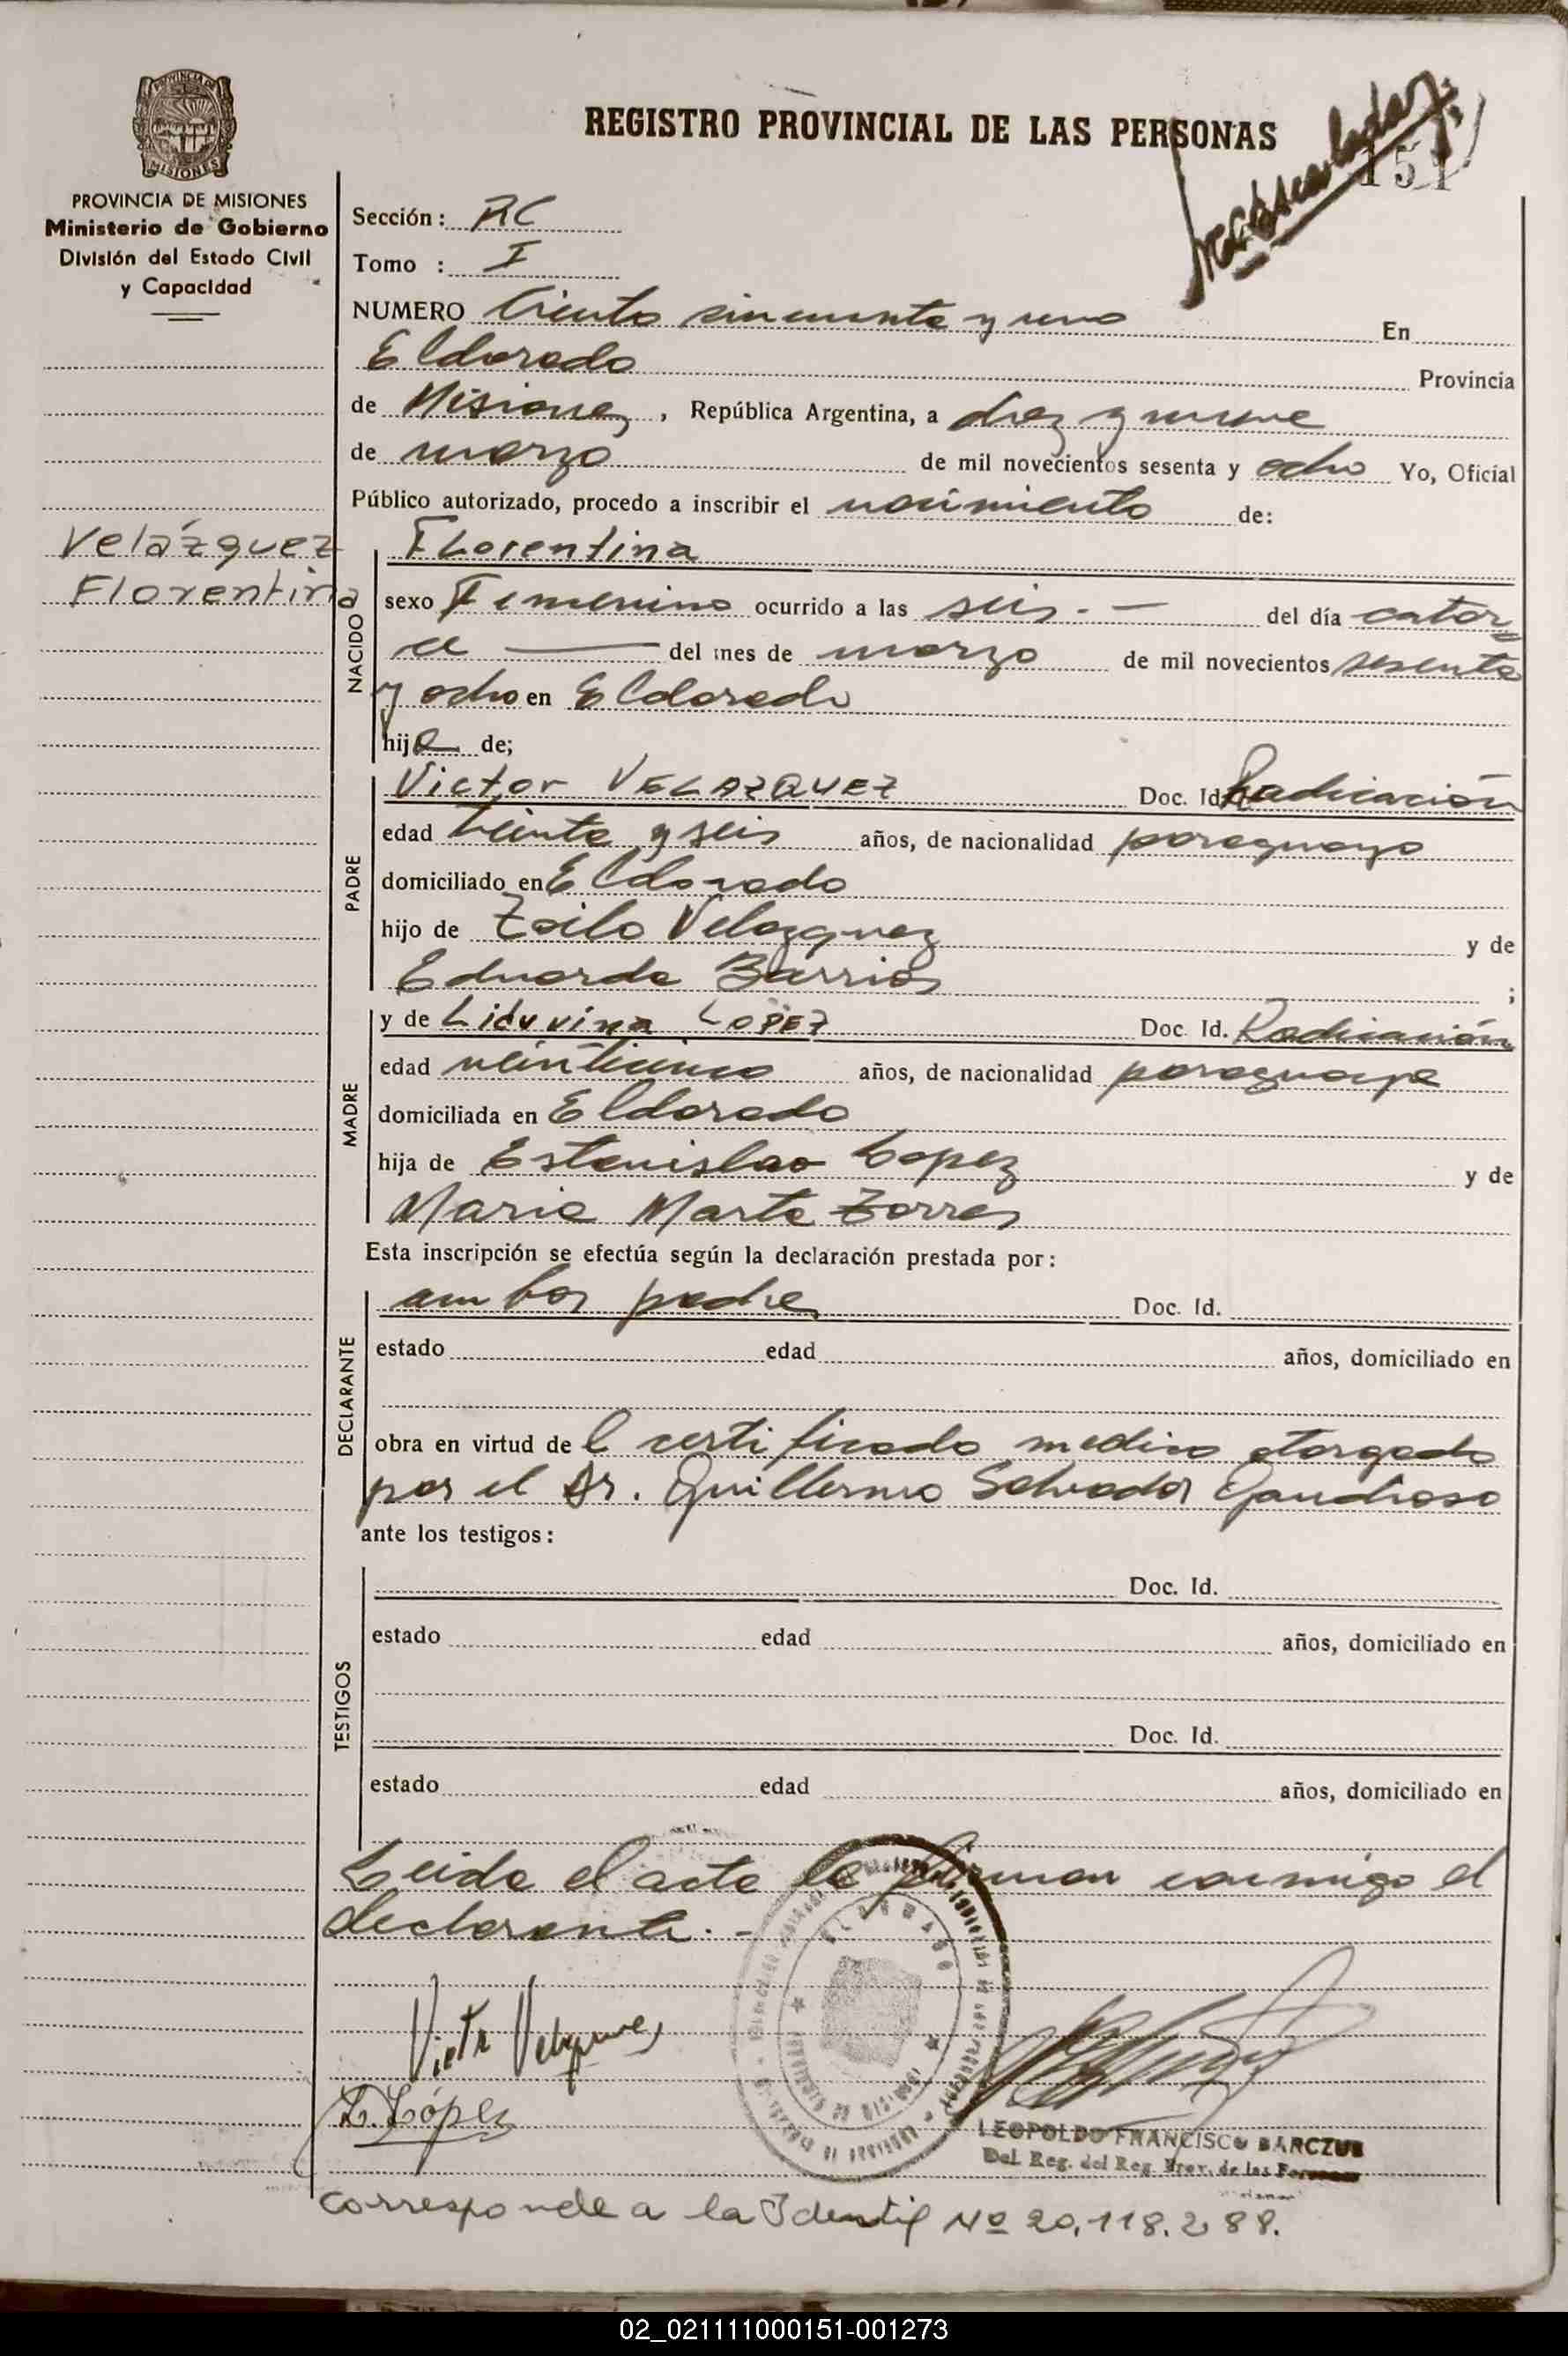 REGISTRO PROVINCIAL DE LAS PERSONAS
151
PROVINCIA DE MISIONES
Ministerio de Gobierno
División del Estado Civil
y Capacidad
Sección: RC
Tomo : I
NUMERO Ciento sincuenta y uno En
Eldorado Provincia
de Misiones, República Argentina, a diez y nueve
de marzo de mil novecientos sesenta y ocho Yo, Oficial
Público autorizado, procedo a inscribir el nacimiento de:
Velázquez
Florentina
NACIDO
Florentina
sexo Femenino ocurrido a las seis.- del día cator
ce del mes de marzo de mil novecientos sesenta
y ocho en Eldorado
hija de;
PADRE
Victor VELAZQUEZ Doc. Id. Radicación
edad veinte y seis años, de nacionalidad paraguayo
domiciliado en Eldorado
hijo de Zoilo Velazquez y de
Eduarda Barrios ;
MADRE
y de Liduvina LOPEZ Doc. Id. Radicación
edad veinticinco años, de nacionalidad paraguaya
domiciliada en Eldorado
hija de Estanislao Lopez y de
Maria Marta Torres
Esta inscripción se efectúa según la declaración prestada por:
DECLARANTE
ambos padres Doc. Id.
estado edad años, domiciliado en
obra en virtud del certificado medico otorgado
por el Dr. Guillermo Salvador Gaudioso
ante los testigos:
TESTIGOS
Doc. Id.
estado edad años, domiciliado en
Doc. Id.
estado edad años, domiciliado en
Leida el acta la firman conmigo el
declarante.-
Victor Velazquez
L. López
LEOPOLDO FRANCISCO BARCZUK
Del. Reg. del Reg. Prov. de las Personas
Corresponde a la Identif Nº 20.118.288.
02_021111000151-001273